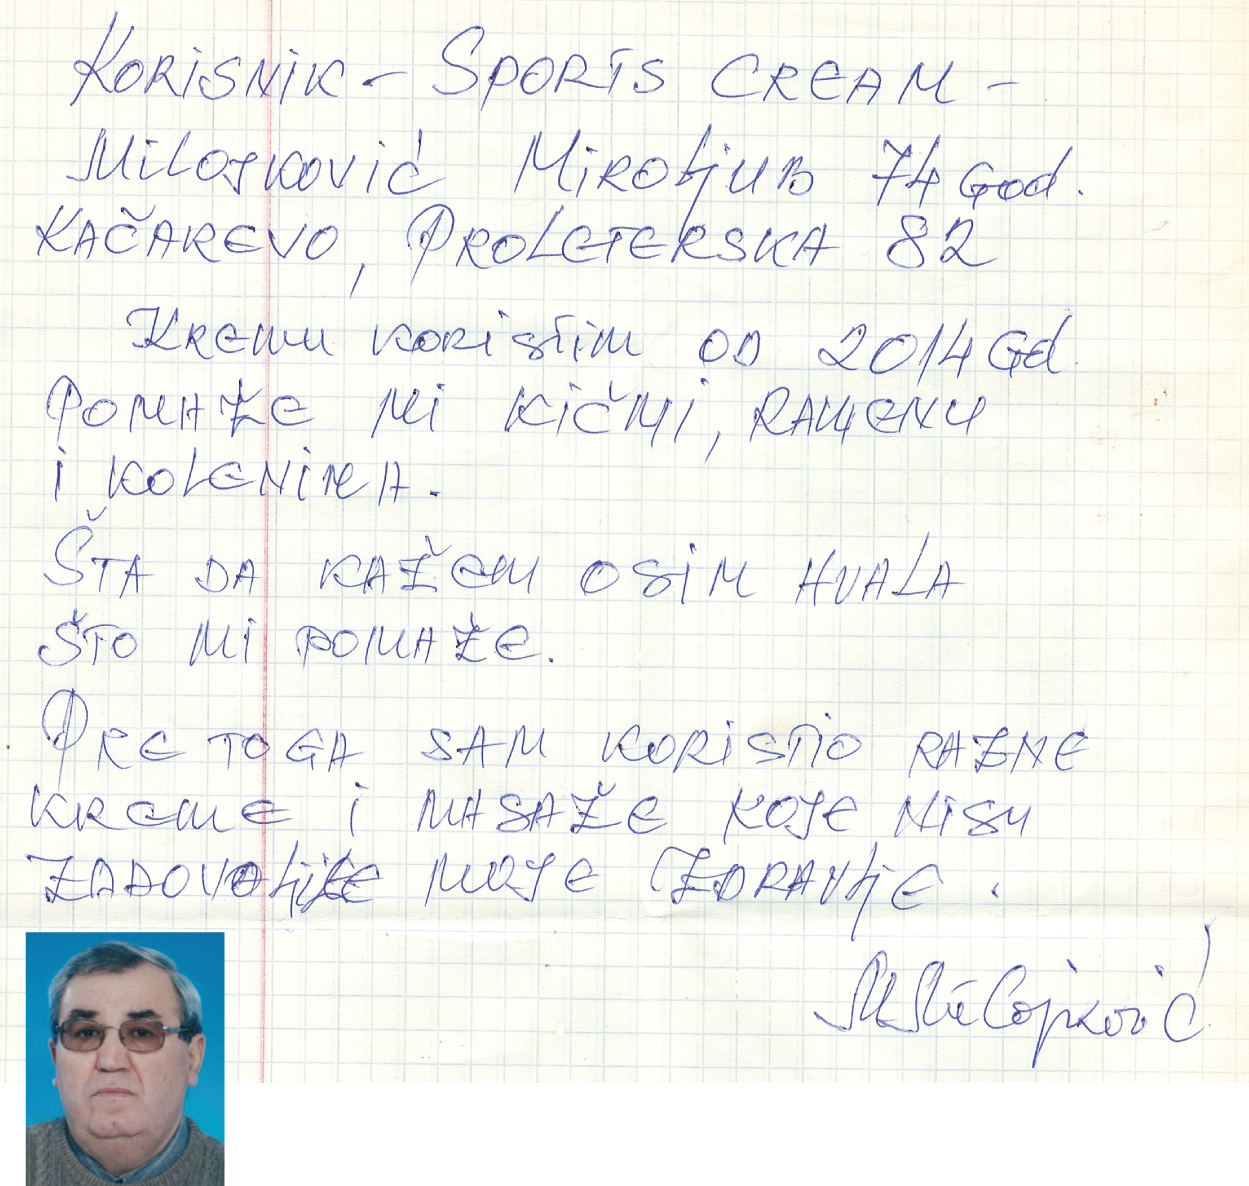 KORISNIK - SPORTS CREAM -
MILOJKOVIĆ MIROLJUB 74 GOD.
KAČAREVO, PROLETERSKA 82
KREMU KORISTIM OD 2014 Gd.
POMAŽE MI KIČMI, RAMENU
I KOLENIMA.
ŠTA DA KAŽEM OSIM HVALA
ŠTO MI POMAŽE.
PRE TOGA SAM KORISTIO RAZNE
KREME I MASAŽE KOJE NISU
ZADOVOLJILE MOJE ZDRAVLJE.
M Milojković